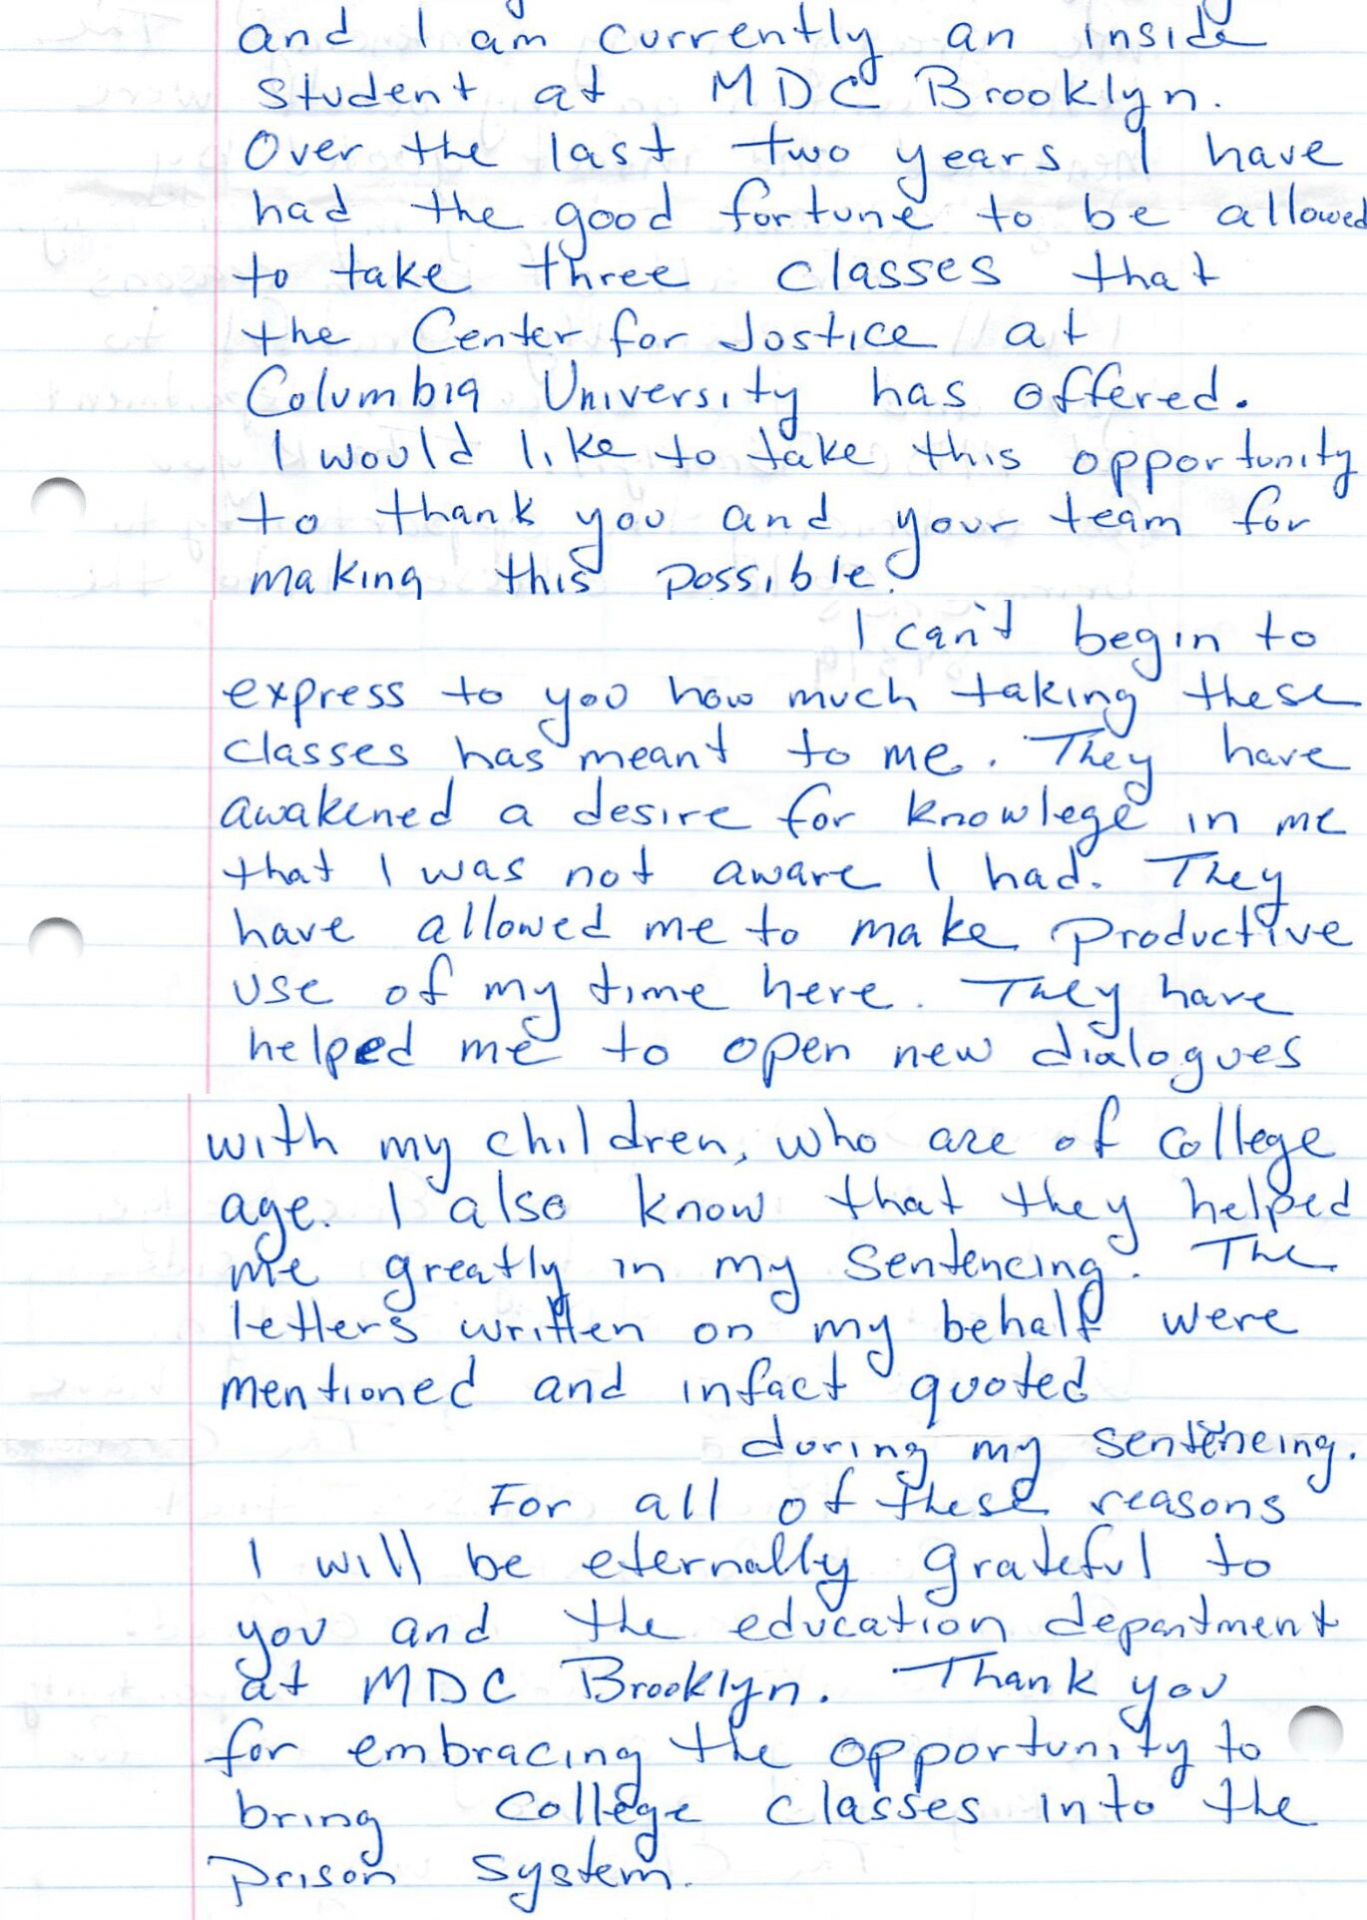 and I am currently an inside
student at MDC Brooklyn.
Over the last two years I have
had the good fortune to be allowed
to take three classes that
the Center for Jostice at
Columbia University has offered.
I would like to take this opportunity
to thank you and your team for
making this possible.
I can't begin to
express to you how much taking these
classes has meant to me. They have
awakened a desire for knowlege in me
that I was not aware I had. They
have allowed me to make productive
use of my time here. They have
helped me to open new dialogues
with my children, who are of college
age. I also know that they helped
me greatly in my sentencing. The
letters written on my behalf were
mentioned and infact quoted
during my sentencing.
For all of these reasons
I will be eternally grateful to
you and the education department
at MDC Brooklyn. Thank you
for embracing the opportunity to
bring college classes into the
prison system.